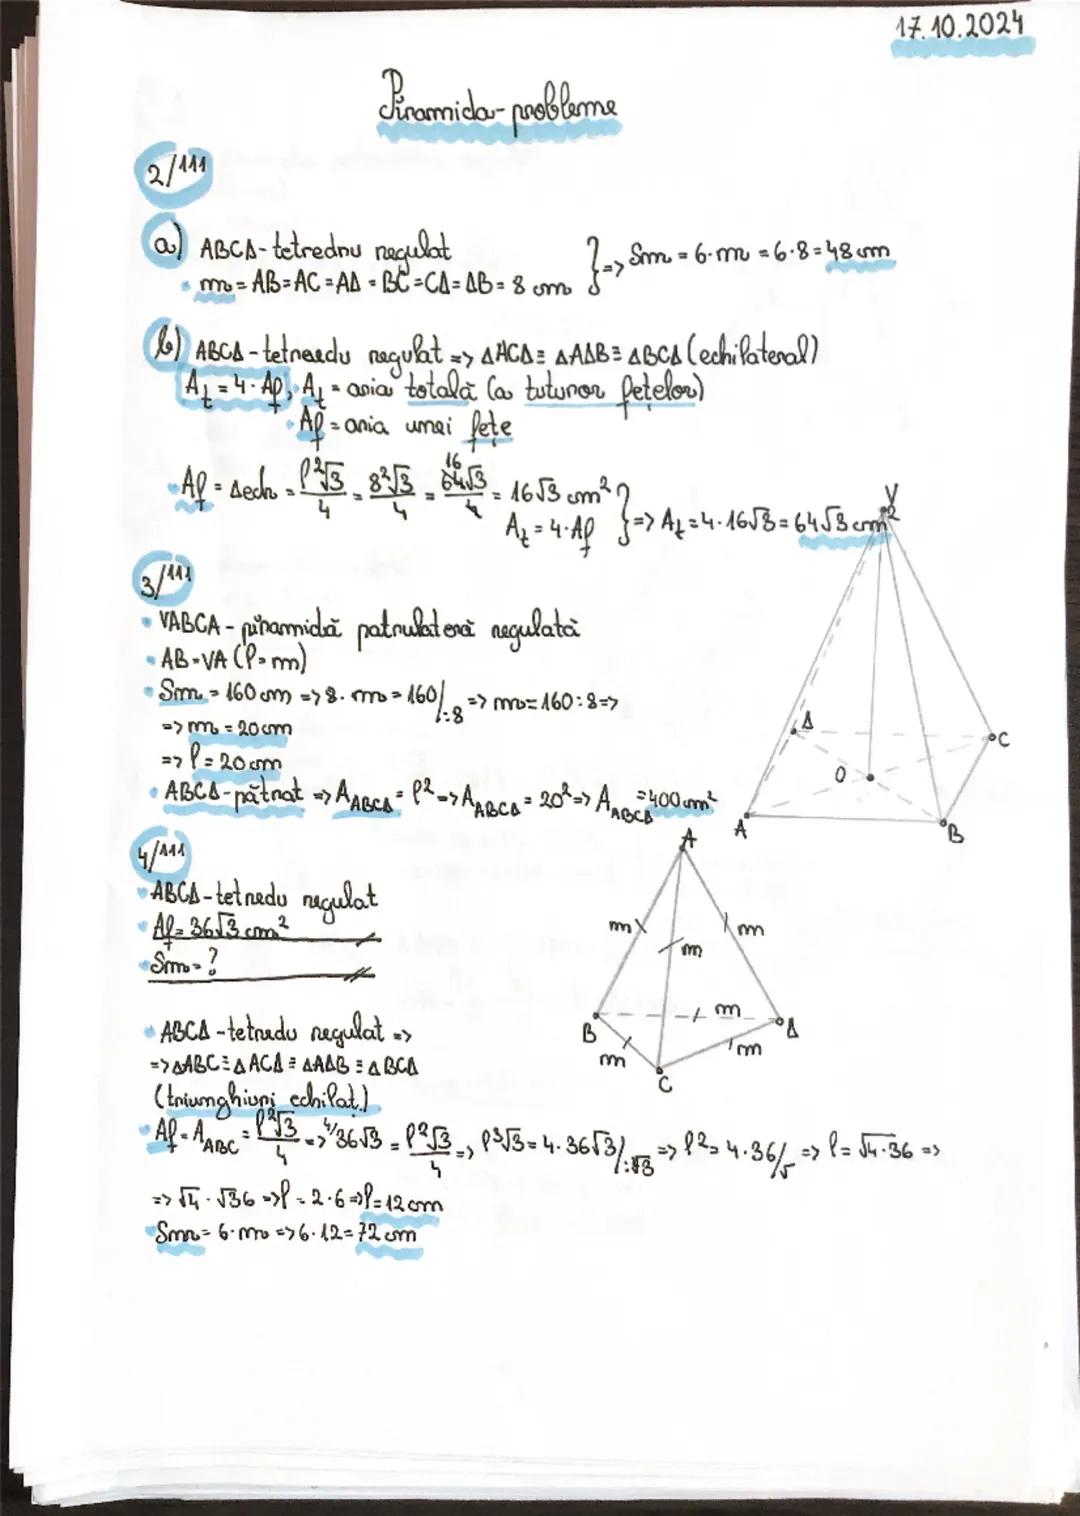 17.10.2024
Piramida-probleme
2/111
a) ABCΔ-tetredru regulat
m = AB=AC=AΔ=BC=CΔ=ΔB=8 cm } => Sm = 6·m = 6·8=48 cm
b) ABCΔ-tetraedu regulat => ΔACΔ≡ΔAΔB≡ΔBCΔ (echilateral)
At = 4·Af, At = aria totală (a tuturor fețelor)
Af = aria unei fețe
Af = Δech = l²√3/4 = 8²√3/4 = 64√3/4 16 = 16√3 cm²
At = 4·Af } => At=4·16√3=64√3 cm²
3/111
VABCΔ - piramidă patrulateră regulată
AB=VA (l=m)
Sm = 160 cm => 8·m=160/:8 => m=160:8=>
=> m = 20 cm
=> l = 20 cm
ABCΔ-pătrat => AABCΔ = l² => AABCΔ = 20² => AABCΔ = 400 cm²
V
Δ
C
O
A
B
4/111
ABCΔ-tetredu regulat
Af = 36√3 cm²
Sm = ?
A
m
m
m
m
B
Δ
m
m
C
ABCΔ-tetredu regulat =>
=> ΔABC≡ΔACΔ≡ΔAΔB≡ΔBCΔ
(triunghiuri echilat.)
Af = AABC = l²√3/4 => 4/36√3 = l²√3/4 => l³√3=4·36√3/:√3 => l²=4·36/√ => l=√4·36 =>
=> √4·√36 => l = 2·6 => l=12 cm
Sm = 6·m => 6·12=72 cm